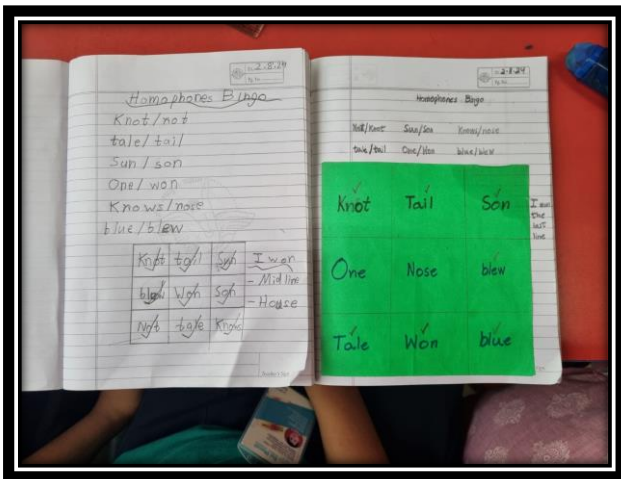 2-8-24
Homophones Bingo
Knot/not
tale/tail
Sun/son
One/won
Knows/nose
blue/blew
Knot tail Sun
blew Won Son
Not tale Knows
I won
- Mid line
- House
2-8-24
Homophones Bingo
Not/Knot Sun/Son Knows/nose
tale/tail One/Won blue/blew
Knot Tail Son
One Nose blew
Tale Won blue
I won
the
last
line